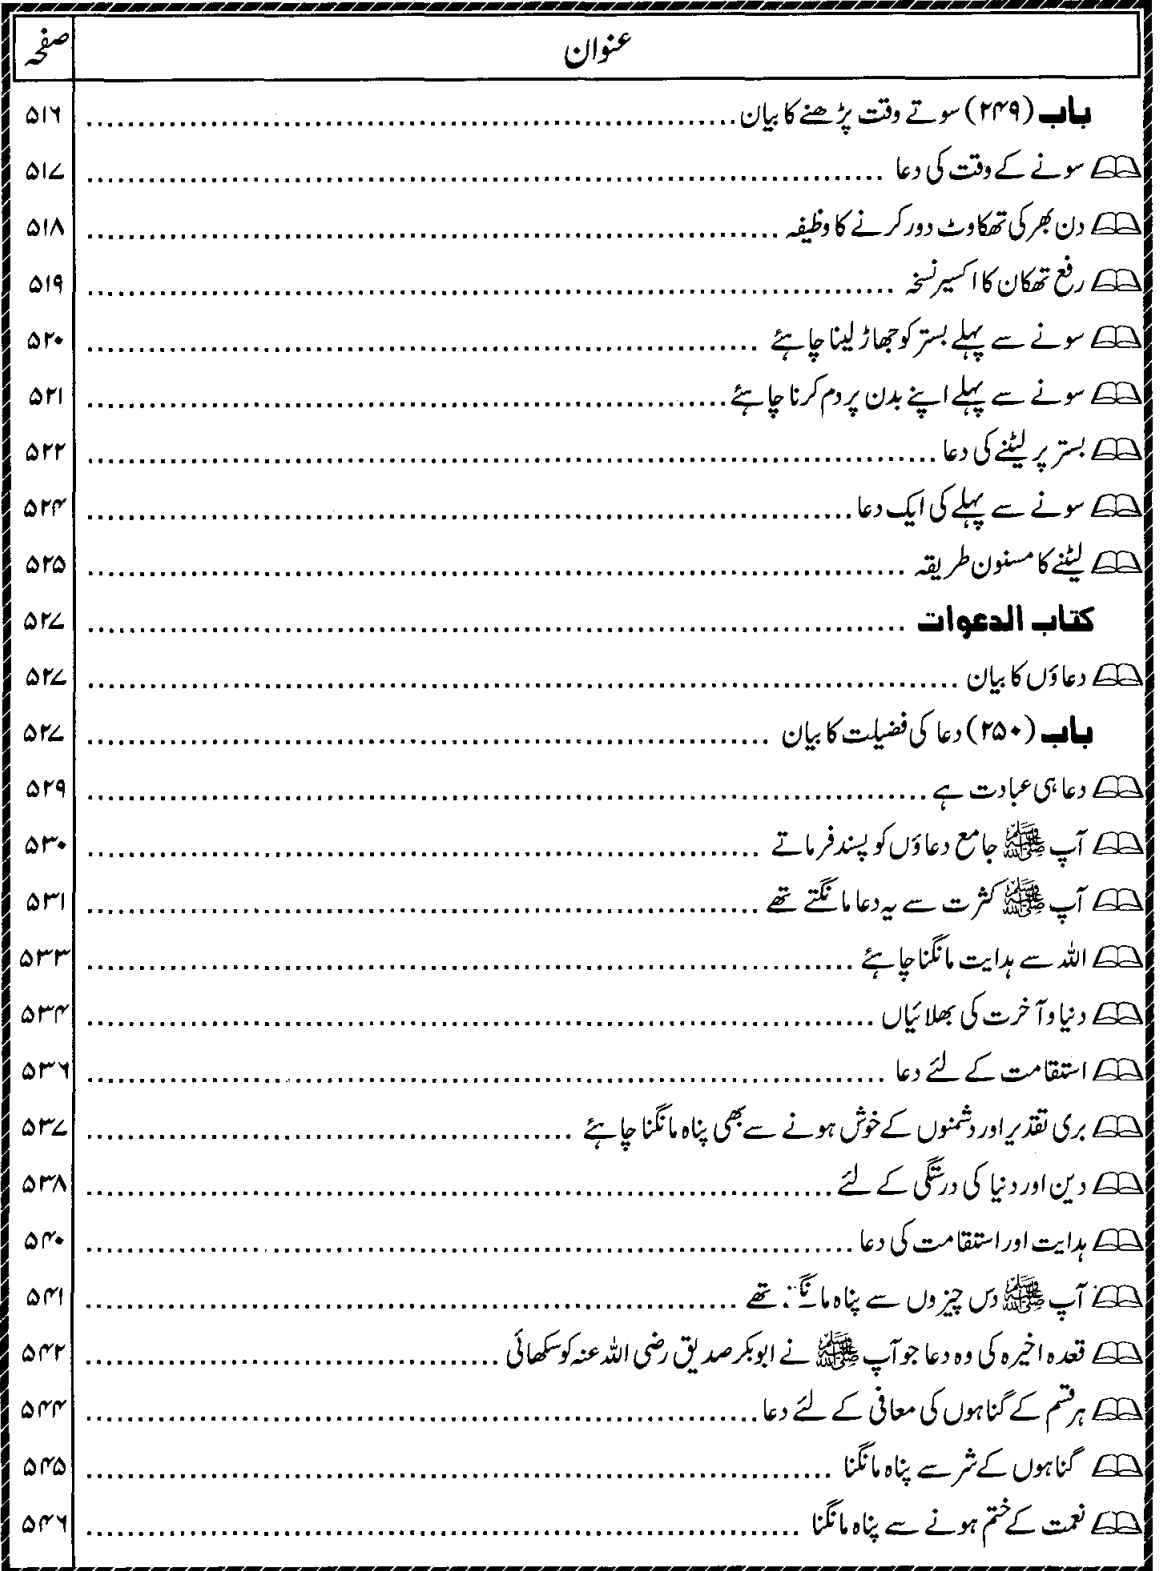 عنوان صفحہ
باب (۲۴۹) سوتے وقت پڑھنے کا بیان ۵۱۶
سونے کے وقت کی دعا ۵۱۷
دن بھر کی تھکاوٹ دور کرنے کا وظیفہ ۵۱۸
رفع تھکان کا اکسیر نسخہ ۵۱۹
سونے سے پہلے بستر کو جھاڑ لینا چاہئے ۵۲۰
سونے سے پہلے اپنے بدن پر دم کرنا چاہئے ۵۲۱
بستر پر لیٹنے کی دعا ۵۲۲
سونے سے پہلے کی ایک دعا ۵۲۴
لیٹنے کا مسنون طریقہ ۵۲۵
کتاب الدعوات ۵۲۷
دعاؤں کا بیان ۵۲۷
باب (۲۵۰) دعا کی فضیلت کا بیان ۵۲۷
دعا ہی عبادت ہے ۵۲۹
آپ ﷺ جامع دعاؤں کو پسند فرماتے ۵۳۰
آپ ﷺ کثرت سے یہ دعا مانگتے تھے ۵۳۱
اللہ سے ہدایت مانگنا چاہئے ۵۳۳
دنیا و آخرت کی بھلائیاں ۵۳۴
استقامت کے لئے دعا ۵۳۶
بری تقدیر اور دشمنوں کے خوش ہونے سے بھی پناہ مانگنا چاہئے ۵۳۷
دین اور دنیا کی درستگی کے لئے ۵۳۸
ہدایت اور استقامت کی دعا ۵۴۰
آپ ﷺ دس چیزوں سے پناہ تھے ۵۴۱
قعدہ اخیرہ کی وہ دعا جو آپ ﷺ نے ابوبکر صدیق رضی اللہ عنہ کو سکھائی ۵۴۲
ہر قسم کے گناہوں کی معافی کے لئے دعا ۵۴۴
گناہوں کے شر سے پناہ مانگنا ۵۴۵
نعمت کے ختم ہونے سے پناہ مانگنا ۵۴۶